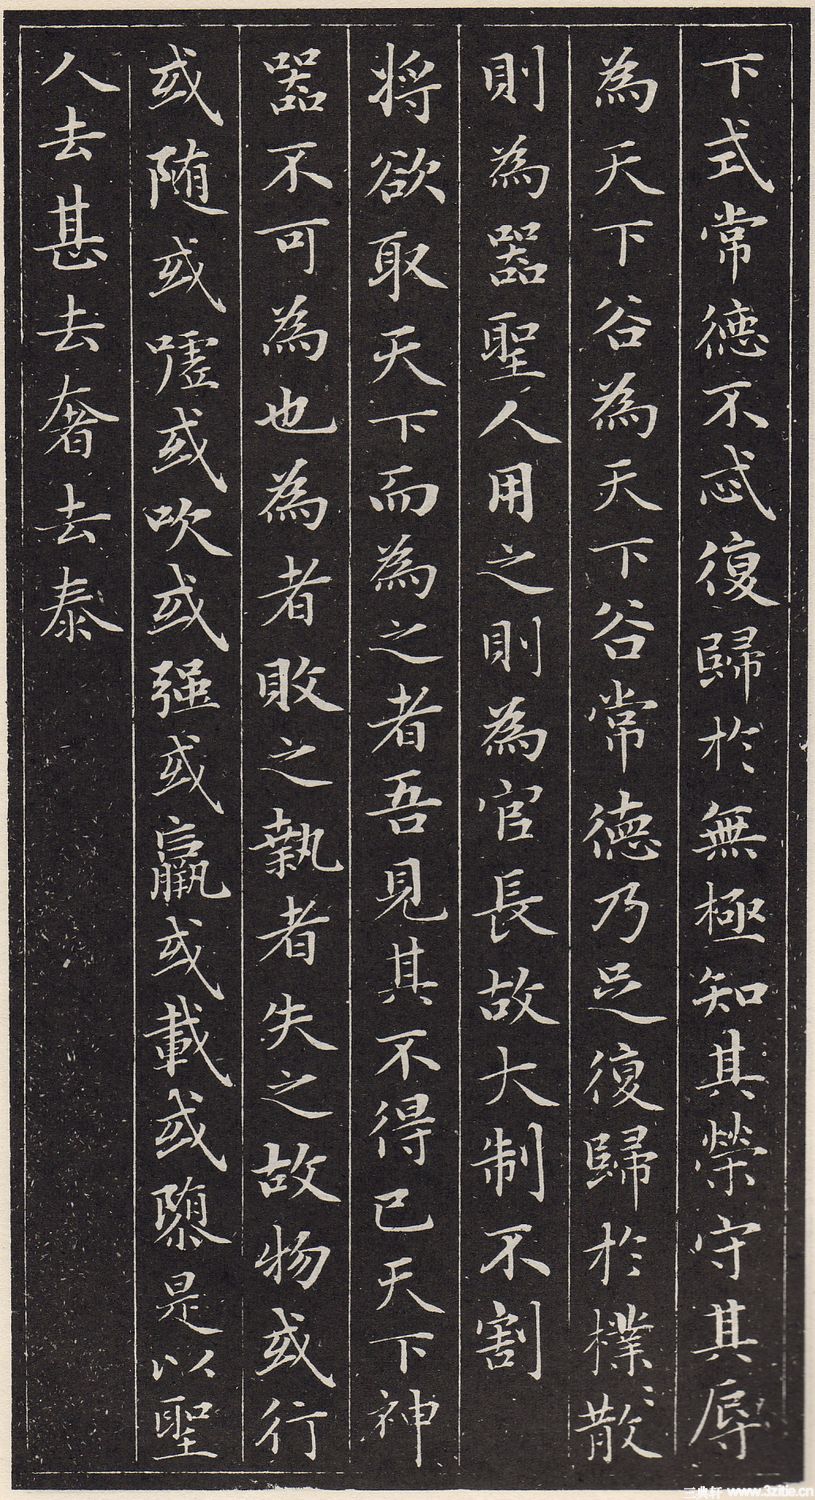 下式常德不忒復歸於無極知其榮守其辱
為天下谷為天下谷常德乃足復歸於樸〻散
則為器聖人用之則為官長故大制不割
將欲取天下而為之者吾見其不得已天下神
器不可為也為者敗之執者失之故物或行
或隨或嘘或吹或强或羸或載或隳是以聖
人去甚去奢去泰
三典轩 www.3zitie.cn